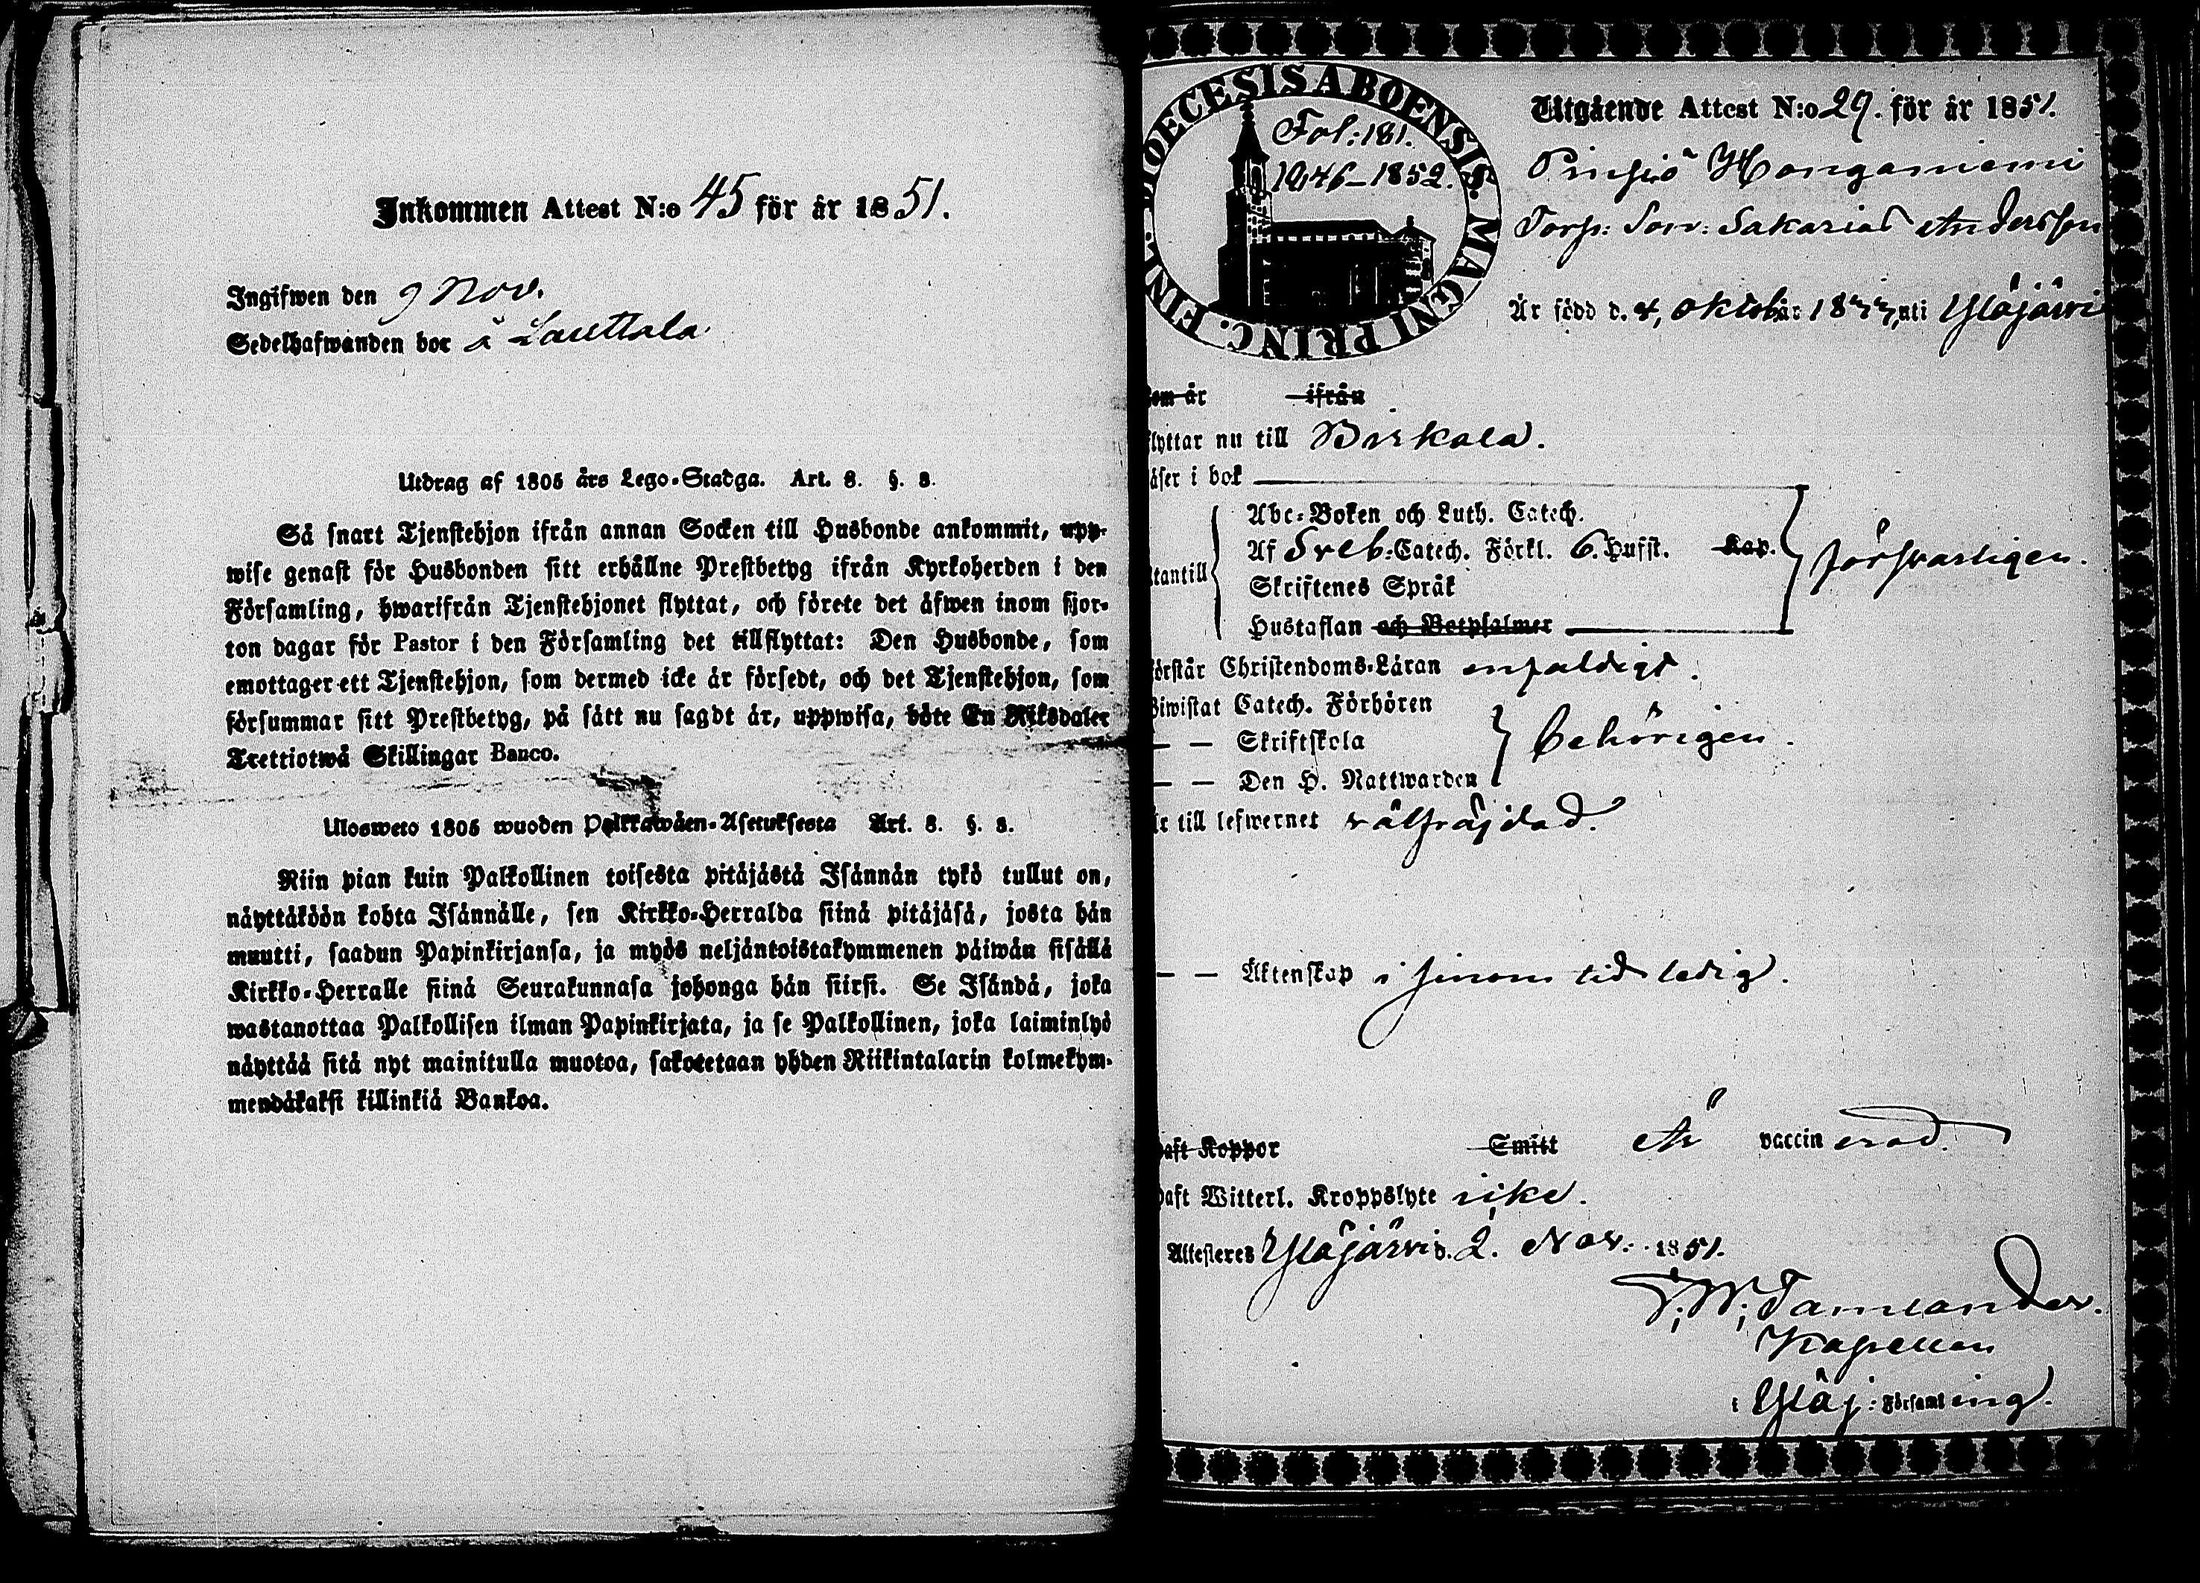 Inkommen Attest N:o 45 för år 1851.
Ingifwen den 9 Nov.
Sedelhafwanden bor å Lauttala
Utdrag af 1805 års Lego-Stadga. Art. 8. §. 8.
Så snart Tjenstehjon ifrån annan Socken till Husbonde ankommit, upp-
wise genast för Husbonden sitt erhållne Prestbetyg ifrån Kyrkoherden i den
Församling, hwarifrån Tjenstehjonet flyttat, och förete det äfwen inom fjor-
ton dagar för Pastor i den Församling det tillflyttat: Den Husbonde, som
emottager ett Tjenstehjon, som dermed icke är försedt, och det Tjenstehjon, som
försummar sitt Prestbetyg, på sätt nu sagdt är, uppwisa, böte En Riksdaler
Trettiotwå Skillingar Banco.
Ulosweto 1805 wuoden Palkkawäen-Asetuksesta Art. 8. §. 8.
Niin pian kuin Palkollinen toisesta pitäjästä Isännän tykö tullut on,
näyttäköön kohta Isännälle, sen Kirkko-Herralda siinä pitäjäsä, josta hän
muutti, saadun Papinkirjansa, ja myös neljäntoistakymmenen päiwän sisällä
Kirkko-Herralle siinä Seurakunnasa johonga hän siirsi. Se Isändä, joka
wastanottaa Palkollisen ilman Papinkirjata, ja se Palkollinen, joka laiminlyö
näyttää sitä nyt mainitulla muotoa, sakotetaan yhden Riikintalarin kolmekym-
mendäkaksi killinkiä Bankoa.
DIOECESIS ABOENSIS. MAGNI PRINC. FINL.
Fol: 181.
1846-1852.
Utgående Attest N:o 29. för år 1851.
Pinsiö Honganiemi
Torp: Son: Sakarias Andersson
Är född d. 4, oktober 18 uti Ylöjärvi
Som är ifrån
flyttar nu till Birkala.
läser i bok
Abc-Boken och Luth. Catech.
Af Sveb: Catech. Förkl. 6. Hufst. Kap.
försvarligen.
utantill
Skriftenes Språk
Hustaflan och Botpsalmer
förstår Christendoms-Läran enfaldigt.
Biwistat Catech. Förhören
— — Skriftskola
behörigen.
— — Den H. Nattwarden
Är till lefwernet välfräjdad.
— — Äktenskap i sinom tid ledig.
Haft Koppor Smitt Är vaccinerad.
Haft Witterl. Kroppslyte icke.
Attesteres Ylöjärvi d. 2. Nov. 1851.
Tamlander.
Kapellan
i Ylöj: Församling.